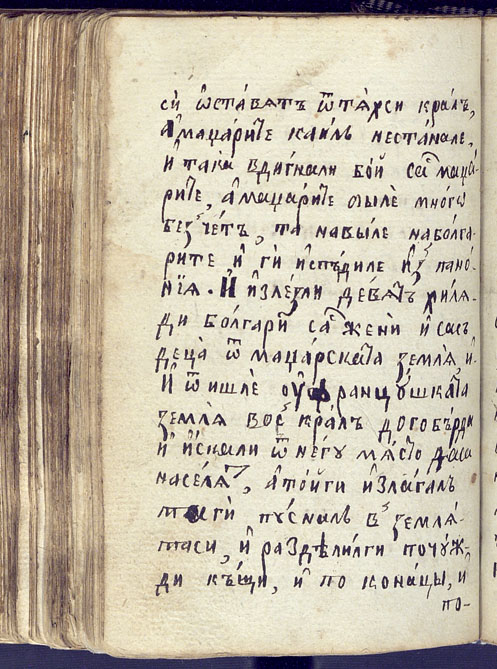 си ѡставѧтъ ѿтѧхси кралъ,
а҆ мацарите каилъ нестанале.
и҆ така вдигнали бои са маца
рите, а҆ мацарите ѡыле многѡ
безчетъ, та навыле наболга
рите и҆ ги и҆спѣдиле и҆з пано
нїѧ. И҆ и҆злегли деветь хилѧ
ди болгари са жени и҆ сась
деца ѿ мацарската землѧ и҆.
И҆ ѿишле ѹ францушката
землѧ вос кралъ догобѣрди
и҆ и҆скали ѿ негу мѧсто даса
населѧт, а҆ тойги и҆злагалъ
таги пусналъ в землѧ
таси, и҆ раздѣлилги почуж
ди кѣщи, и҆ по конацы, и҆
по-